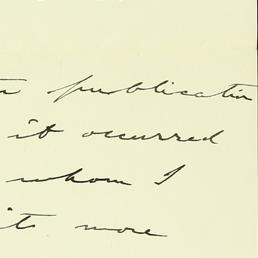 publication
it occurred
whom I
its more